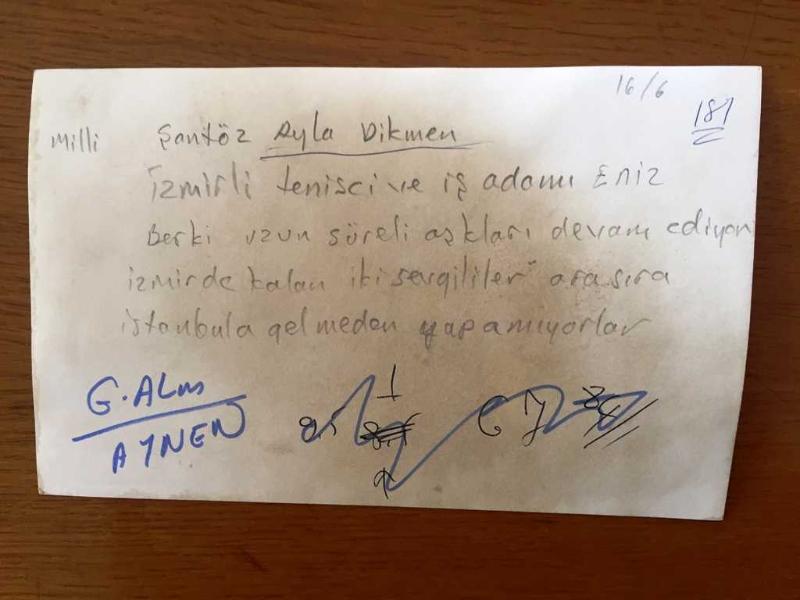 16/6
181
Milli Şantöz Ayla Dikmen
İzmirli tenisci ve iş adamı Eniz
Berki uzun süreli aşkları devam ediyor
izmirde kalan iki sevgililer arasıra
istanbula gelmeden yapamıyorlar
G. ALM
AYNEN